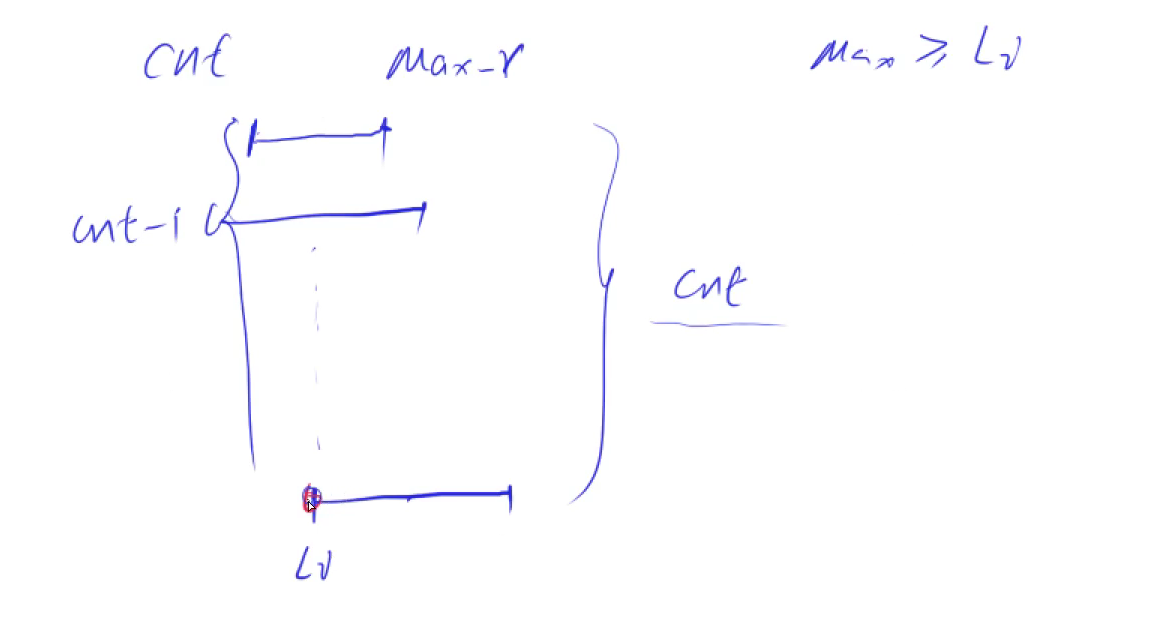 cnt
Max-r
Max ≥ Li
cnt-1
cnt
Li